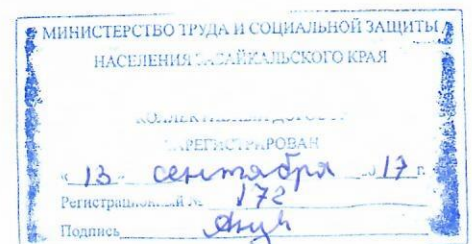 МИНИСТЕРСТВО ТРУДА И СОЦИАЛЬНОЙ ЗАЩИТЫ
НАСЕЛЕНИЯ ЗАБАЙКАЛЬСКОГО КРАЯ
КОЛЛЕКТИВНЫЙ ДОГОВОР
ЗАРЕГИСТРИРОВАН
« 13 » сентября 2017 г.
Регистрационный № 172
Подпись